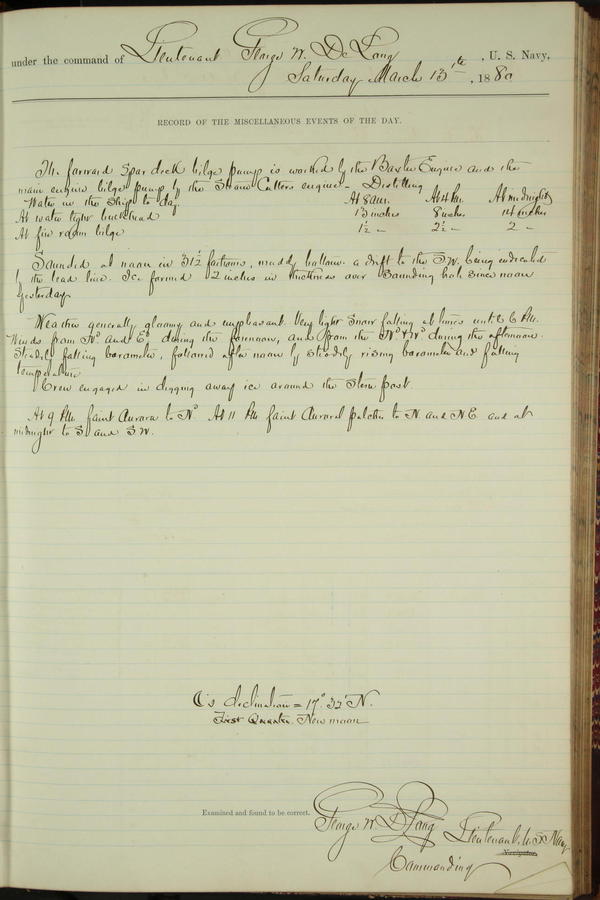 under the command of Lieutenant George W. De Long, U. S. Navy,
Saturday March 13th, 1880
RECORD OF THE MISCELLANEOUS EVENTS OF THE DAY.
The forward spar deck bilge pump is worked by the Baxter Engine and the
main engine bilge pump by the Steam Cutters engine - Distilling
Water in the Ship to day At 8 am. At 4 P.M. At midnight
At water tight bulkhead 13 inches 8 inches 14 inches
At fire room bilge 1½ " 2½ " 2 "
Sounded at noon in 31½ fathoms, muddy bottom. a drift to the S.W. being indicated
by the lead line. Ice formed 2 inches in thickness over Sounding hole since noon
Yesterday.
Weather generally gloomy and unpleasant. Very light Snow falling at times until 6 P.M.
Winds from Nd and Ed during the forenoon, and from the Nd & Wd during the afternoon.
Steadily falling barometer, followed after noon by steadily rising barometer and falling
temperature
Crew engaged in digging away ice around the Stern post.
At 9 P.M. faint Aurora to Nd At 11 P.M. faint Auroral patches to N and NE and at
midnight to S and S.W.
☾'s declination = 17° 32' N.
First Quarter. New moon
Examined and found to be correct.
George W. De Long Lieutenant U.S. Navy
Navigator.
Commanding